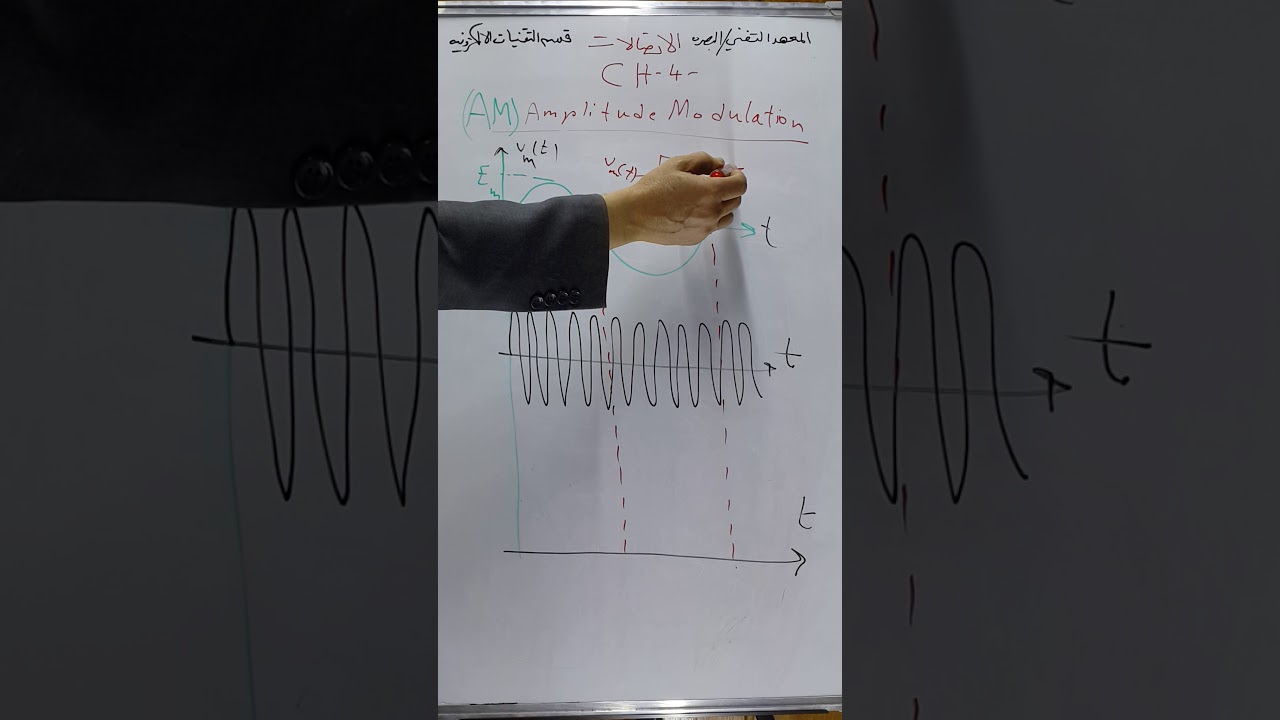 المعهد التقني/البصره الاتصالات = قسم التقنيات الالكترونيه
CH-4-
(AM) Amplitude Modulation
v_m(t)
E_m
v_m(t)
t
t
t